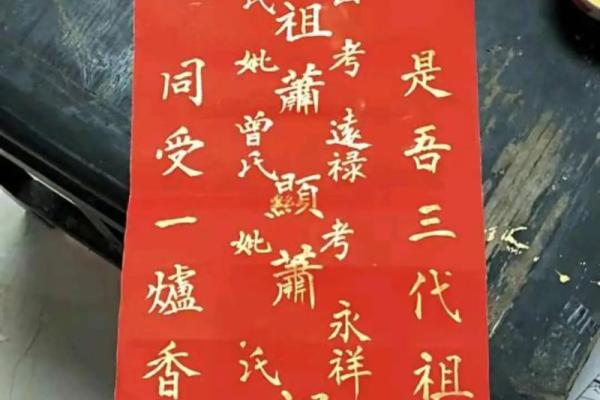 是吾三代祖
考遠禄考永祥
祖蕭顯蕭
氏妣曾氏妣氏
同受一爐香